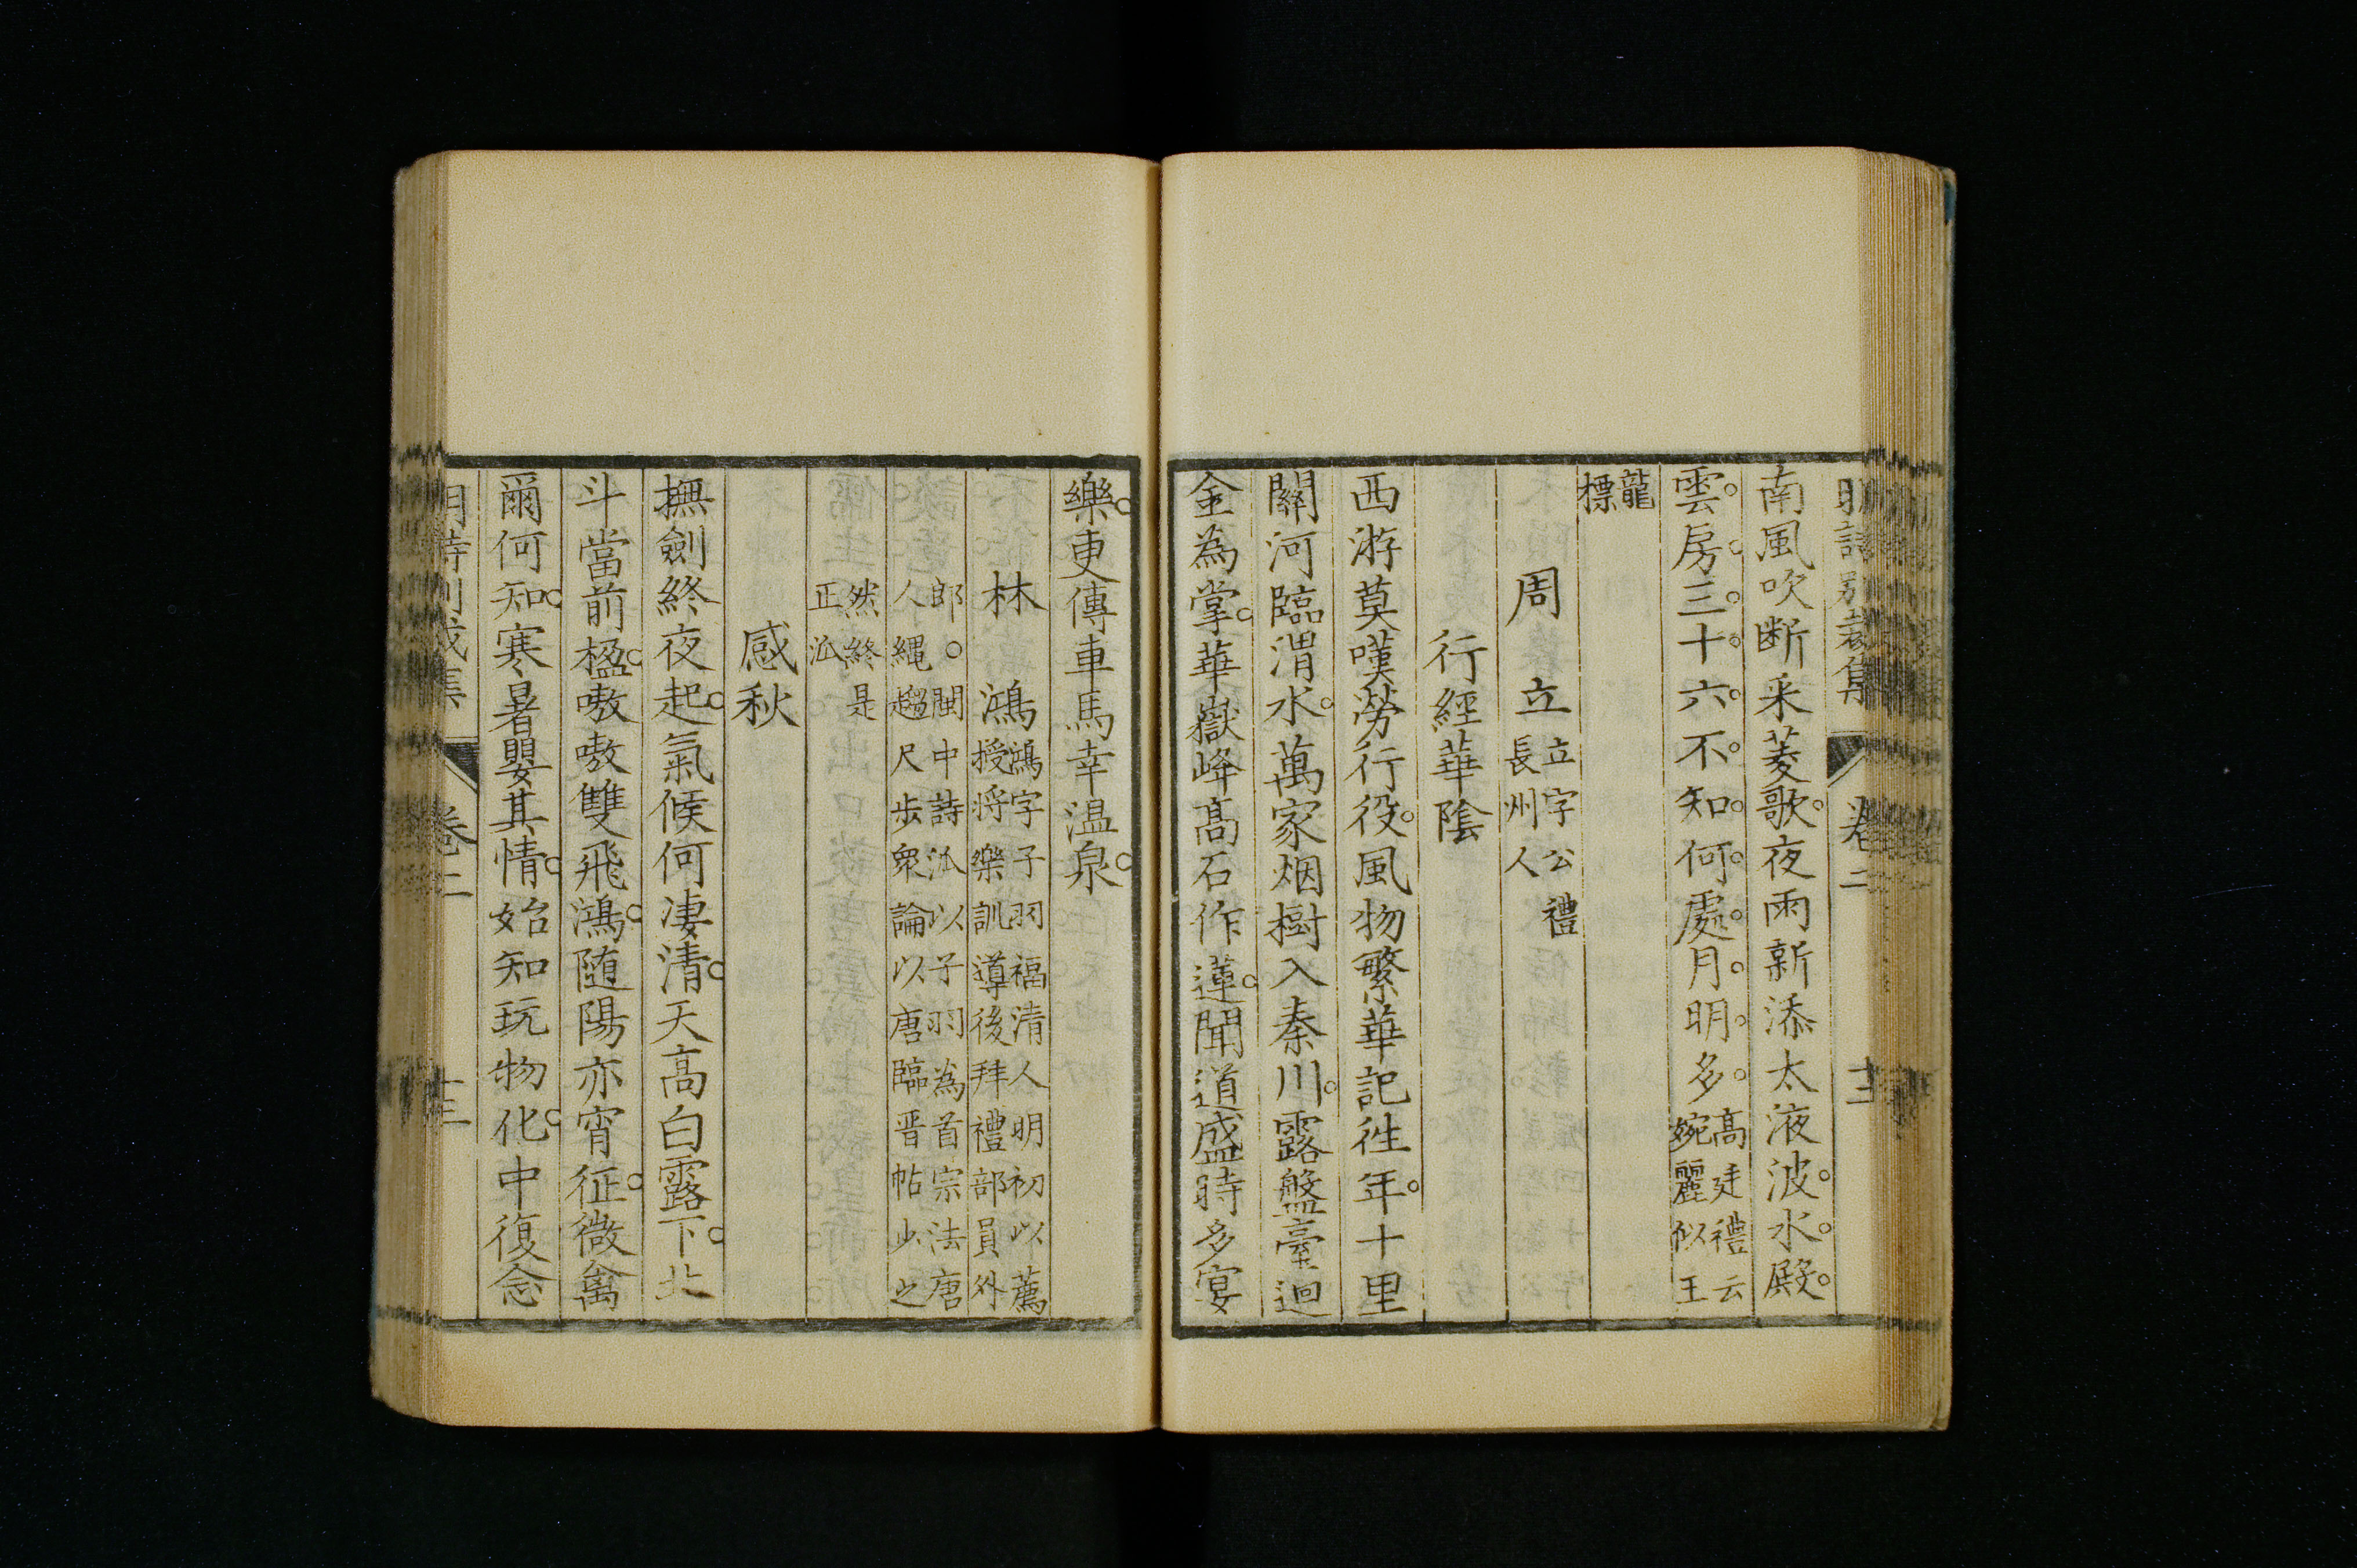 明詩別裁集 卷二 十二
南風吹断采菱歌。夜雨新添太液波。水。殿。
雲。房。三。十。六。不。知。何。處。月。明。多。高廷禮云
婉麗似王
龍
標
周 立 立字公禮
長州人
行經華陰
西游莫嘆勞行役。風物繁華記徃年。十里
關河臨渭水。萬家烟樹入秦川。露盤臺迥
金為掌。華嶽峰高石作蓮。聞道盛時多宴
樂。更傳車馬幸温泉。
林 鴻 鴻字子羽福清人明初以薦
授将樂訓導後拜禮部員外
郎。閩中詩派以子羽為首宗法唐
人繩趨尺步衆論以唐臨晋帖少之
然終是
正派
感秋
撫劍終夜起。氣候何凄清。天高白露下。北
斗當前楹。嗷嗷雙飛鴻。随陽亦宵征。微禽
爾何知。寒暑嬰其情。始知玩物化。中復念
明詩別裁集 卷二 十三